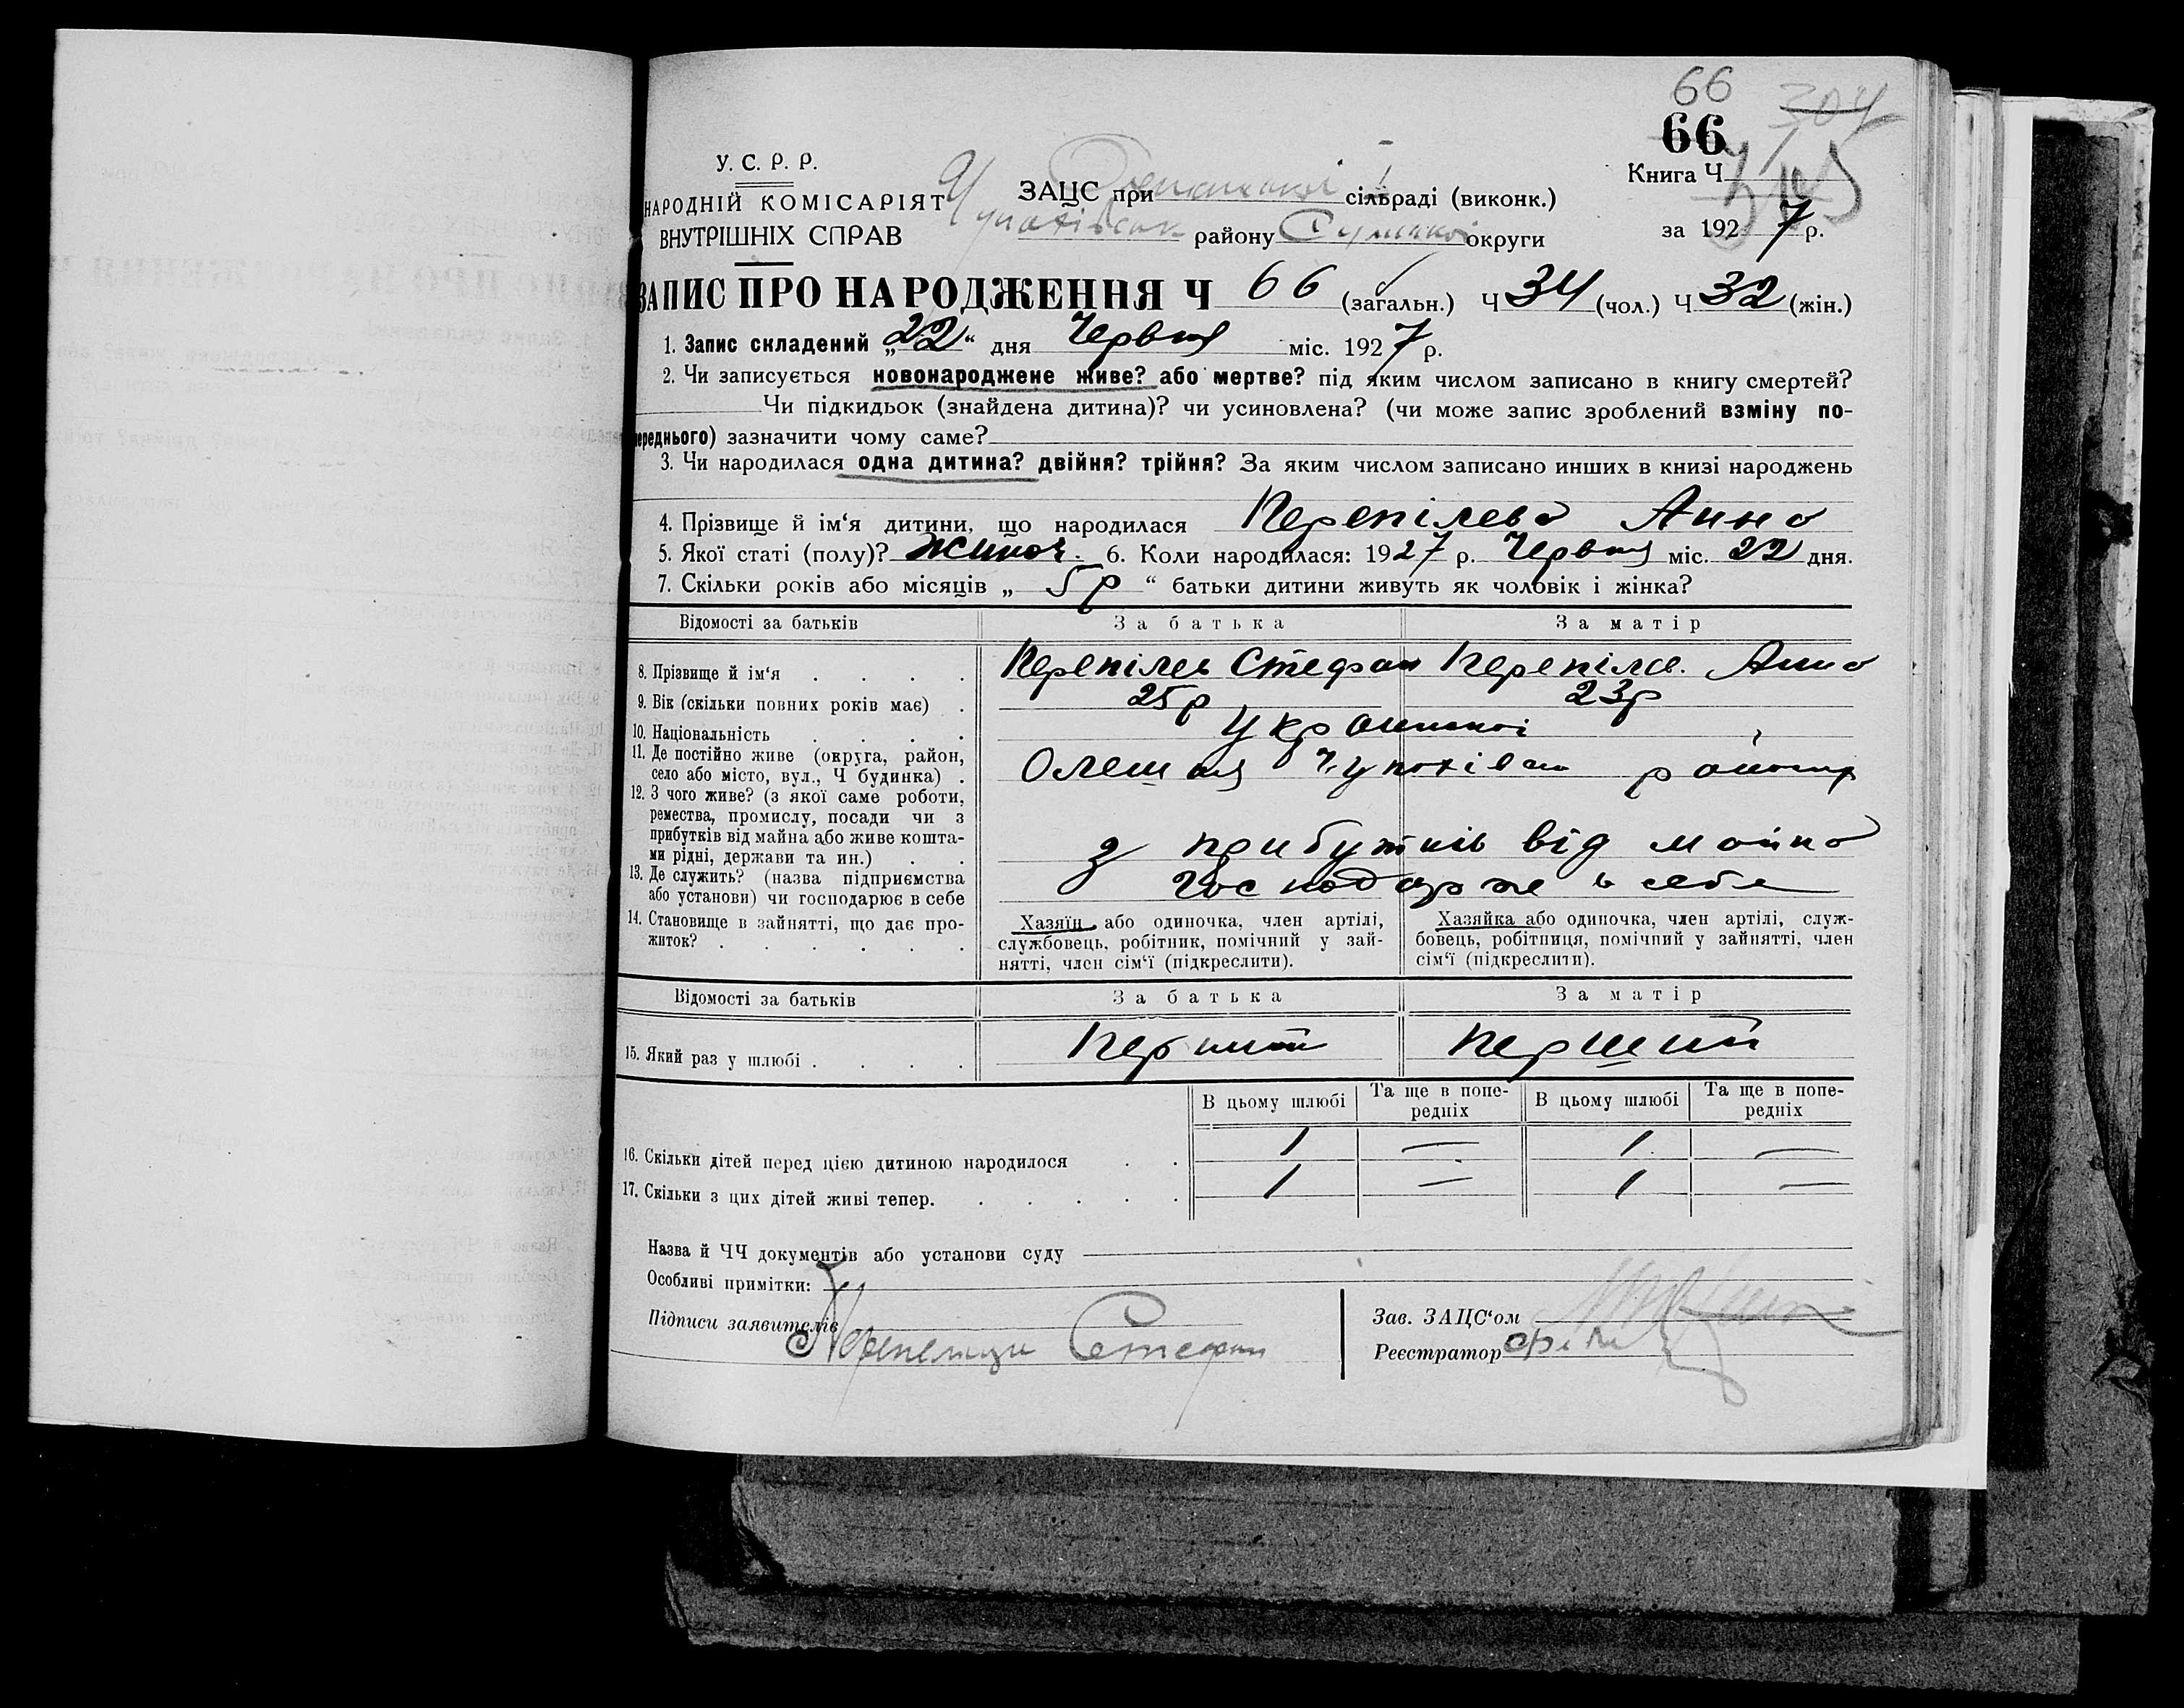 66
66
Книга Ч
за 1927 р.
У. С. Р. Р.
НАРОДНІЙ КОМІСАРІЯТ
ВНУТРІШНІХ СПРАВ
ЗАЦС при сільраді (виконк.)
району Сумської округи
ЗАПИС ПРО НАРОДЖЕННЯ Ч 66 (загальн.) Ч 34 (чол.) Ч 32 (жін.)
1. Запис складений „22“ дня Червня міс. 1927 р.
2. Чи записується новонароджене живе? або мертве? під яким числом записано в книгу смертей?
Чи підкидьок (знайдена дитина)? чи усиновлена? (чи може запис зроблений взміну по-
переднього) зазначити чому саме?
3. Чи народилася одна дитина? двійня? трійня? За яким числом записано инших в книзі народжень
4. Прізвище й ім‘я дитини, що народилася Перепілева Анна
5. Якої статі (полу)? Жиноч. 6. Коли народилася: 1927 р. Червня міс. 22 дня.
7. Скільки років або місяців „ 5р “ батьки дитини живуть як чоловік і жінка?
Відомості за батьків За батька За матір
8. Прізвище й ім‘я . . . . Перепілев Стефан Перепілев. Анна
9. Вік (скільки повних років має) . 25р 23р
10. Національність . . . .
11. Де постійно живе (округа, район,
село або місто, вул., Ч будинка) . Олешня
12. З чого живе? (з якої саме роботи,
ремества, промислу, посади чи з
прибутків від майна або живе кошта-
ми рідні, держави та ин.) . . з прибутків від майна
13. Де служить? (назва підприємства
або установи) чи господарює в себе Господарже в себе
14. Становище в зайнятті, що дає про-
житок? . . . . . .
Хазяїн або одиночка, член артілі,
службовець, робітник, помічний у зай-
нятті, член сім‘ї (підкреслити).
Хазяйка або одиночка, член артілі, служ-
бовець, робітниця, помічний у зайнятті, член
сім‘ї (підкреслити).
Відомості за батьків За батька За матір
15. Який раз у шлюбі . . . . Перший Перший
В цьому шлюбі Та ще в попе-редніх В цьому шлюбі Та ще в попе-редніх
16. Скільки дітей перед цією дитиною народилося . . 1 — 1 —
17. Скільки з цих дітей живі тепер. . . . . . 1 — 1 —
Назва й ЧЧ документів або установи суду
Особливі примітки:
Підписи заявителів
Стефан
Зав. ЗАЦС‘ом
Реєстратор